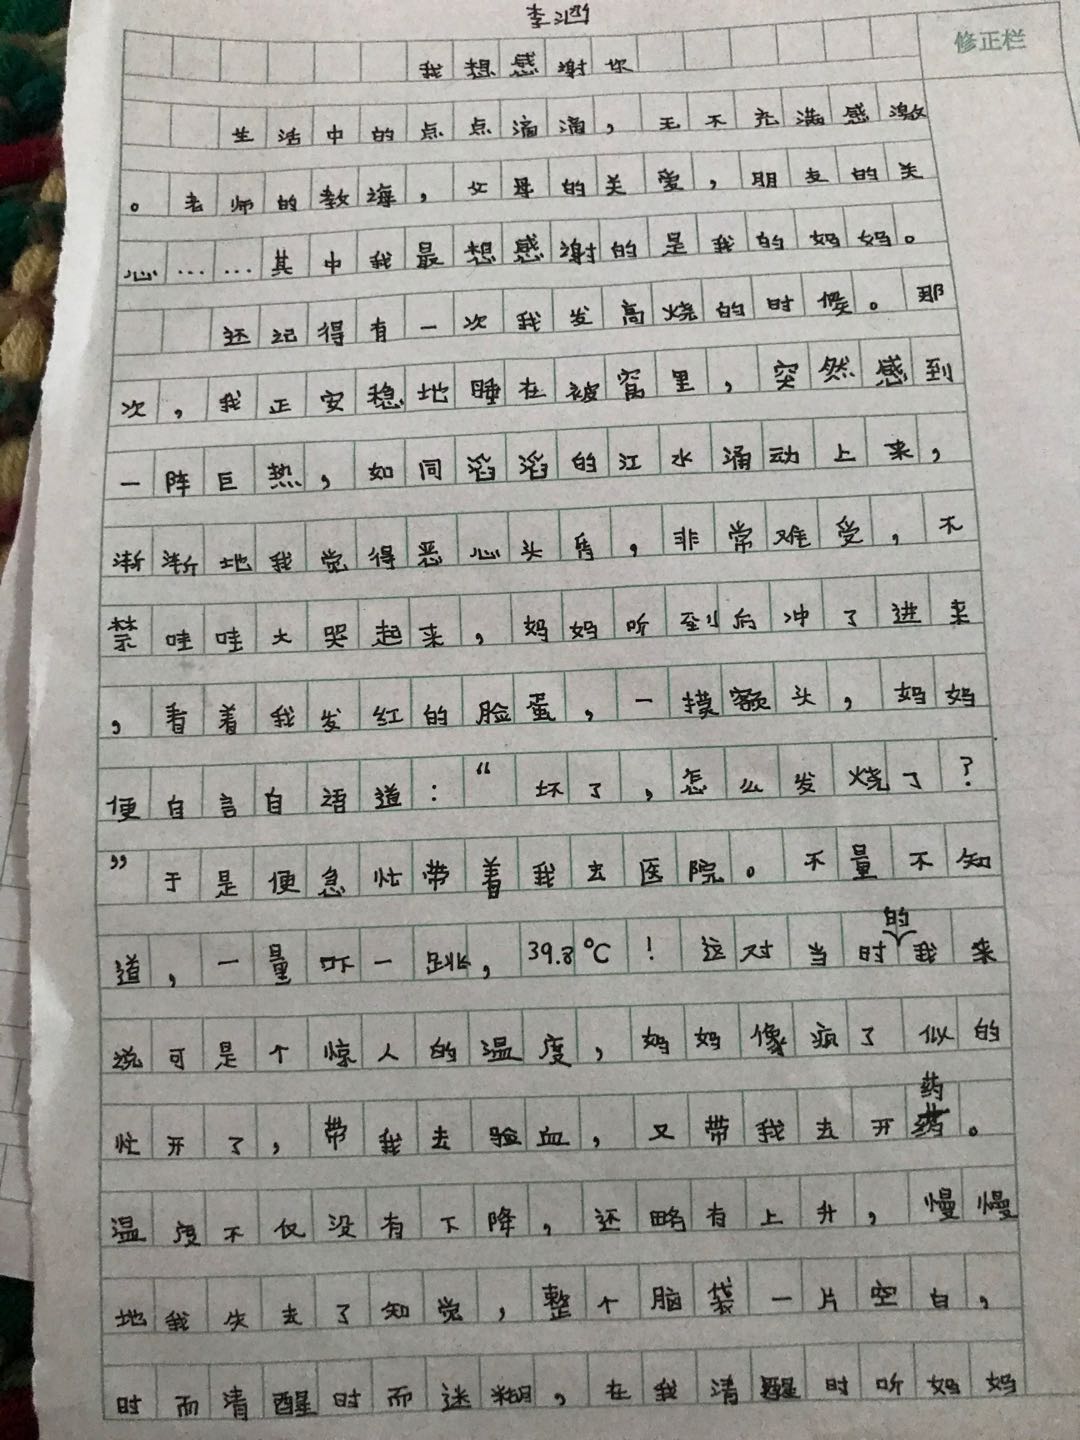 李涵
修正栏
我想感谢你
生活中的点点滴滴，无不充满感激
。老师的教海，父母的关爱，朋友的关
心……其中我最想感谢的是我的妈妈。
还记得有一次我发高烧的时候。那
次，我正安稳地睡在被窝里，突然感到
一阵巨热，如同滔滔的江水涌动上来，
渐渐地我觉得恶心头疼，非常难受，不
禁哇哇大哭起来，妈妈听到后冲了进来
，看着我发红的脸蛋，一摸额头，妈妈
便自言自语道：“坏了，怎么发烧了？
”于是便急忙带着我去医院。不量不知
道，一量吓一跳，39.8℃！这对当时的我来
说可是个惊人的温度，妈妈像疯了似的
忙开了，带我去验血，又带我去开药。
温度不仅没有下降，还略有上升，慢慢
地我失去了知觉，整个脑袋一片空白，
时而清醒时而迷糊，在我清醒时听妈妈